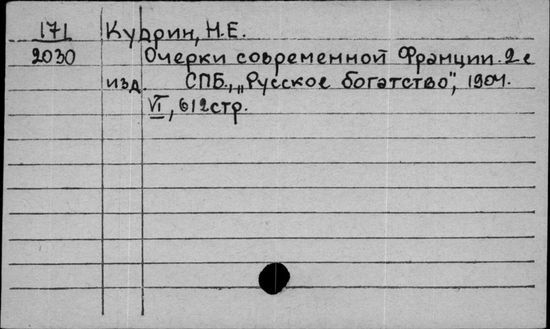 171 Кудрин, Н.Е.
2030 Очерки современной Франции. 2-е
изд. СПБ., „Русское богатство", 1904.
VI, 612 стр.